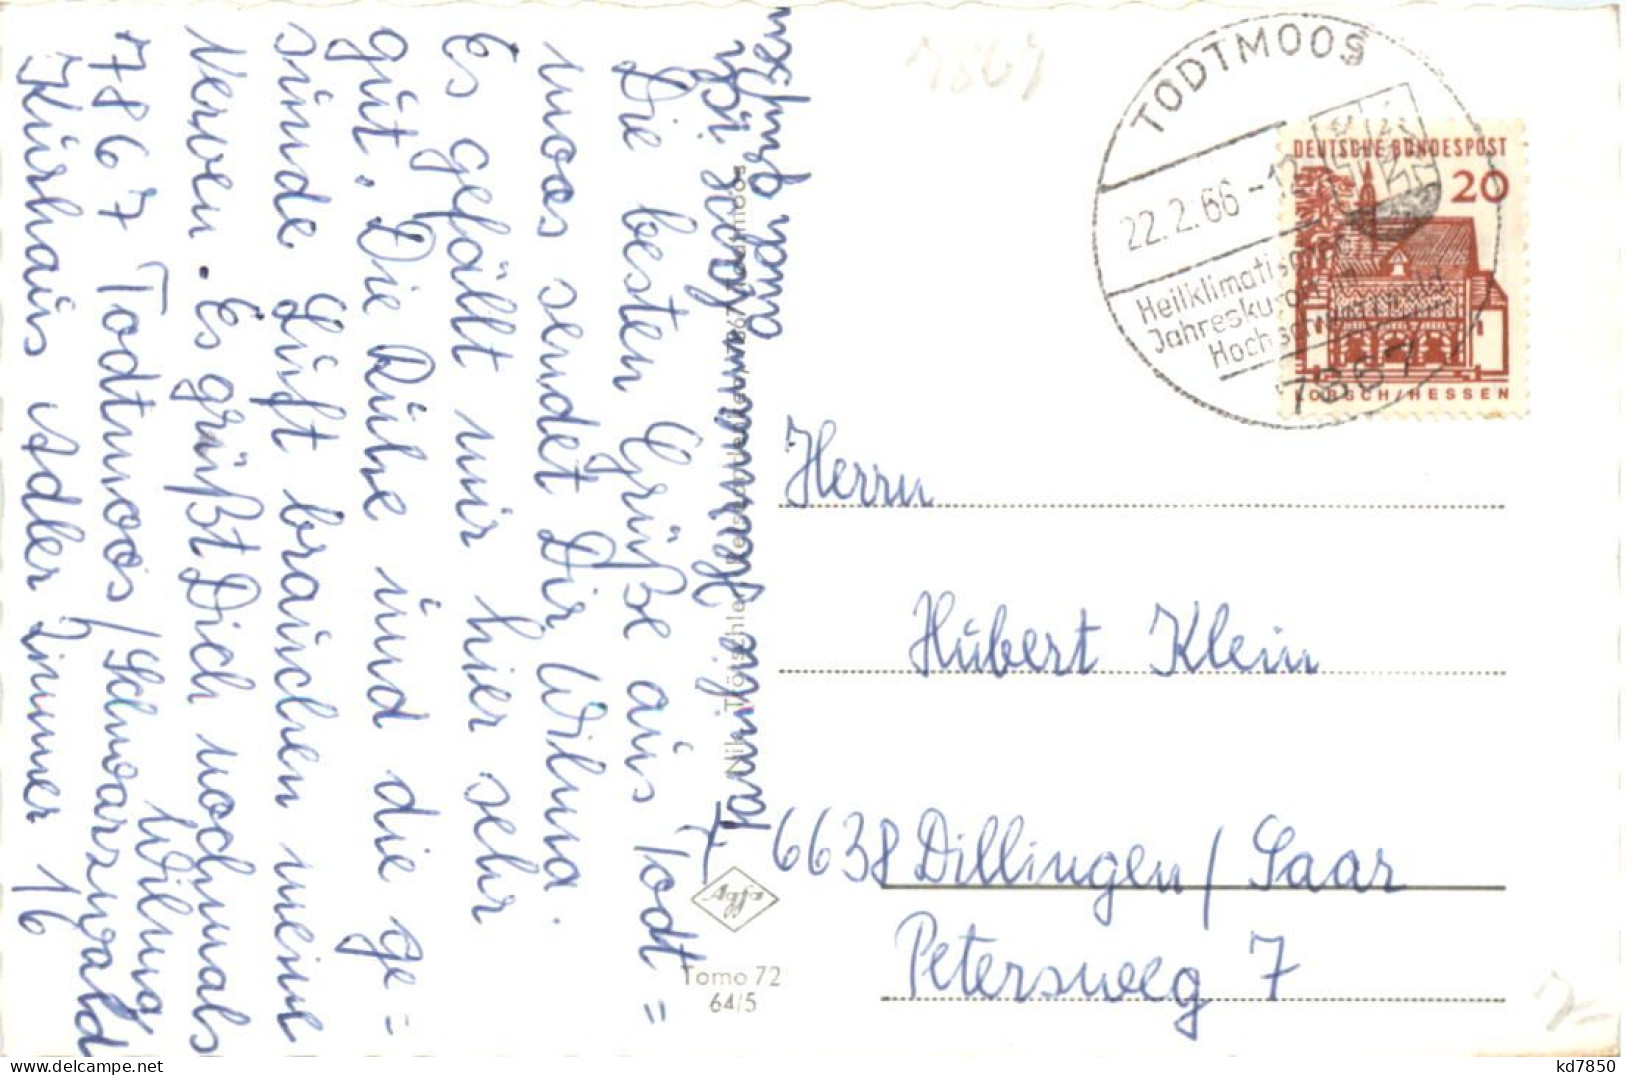 Die besten Grüße aus Todt=
moos sendet Dir Wilma.
Es gefällt mir hier sehr
gut. Die Ruhe und die ge=
sunde Luft brauchen meine
Nerven. Es grüßt Dich nochmals
Wilma
7867 Todtmoos/Schwarzwald
Kurhaus Adler Zimmer 16
Familie Hermann
auch grüßen
Agfa
Tomo 72
64/5
TODTMOOS
22.2.66-12
Heilklimatischer
Jahreskurort im
Hochschwarzwald
7867
DEUTSCHE BUNDESPOST
20
LORSCH/HESSEN
7867
Herrn
Hubert Klein
6638 Dillingen/Saar
Petersweg 7
kd7850